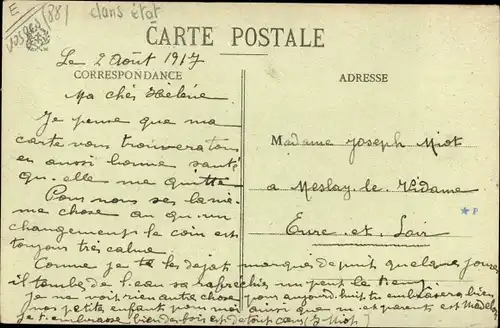 E
Vosges (88) dans état
CARTE POSTALE
Le 2 Août 1917
CORRESPONDANCE
ADRESSE
Ma chér Hélène
Je pense que ma
carte vous trouveratous
en aussi bonne santé
qu'elle me quitte
Pour nous ses lamê-
me chose au qu'un
changement le coin est
toujours très calme
Comme je te les dejat marques depuit quelque jours
il tombe de l'eau sa rafrechis un peut le
je ne voit rien autre chose pour aujourd'huit tu embrasera bien
nos petits enfant pour moi ainsi que nos parents
je t'embrasse bien des fois et de tout cœur J. Miot
Madame Joseph Miot
a Meslay. le. Vidame
Eure. et. Loir
P